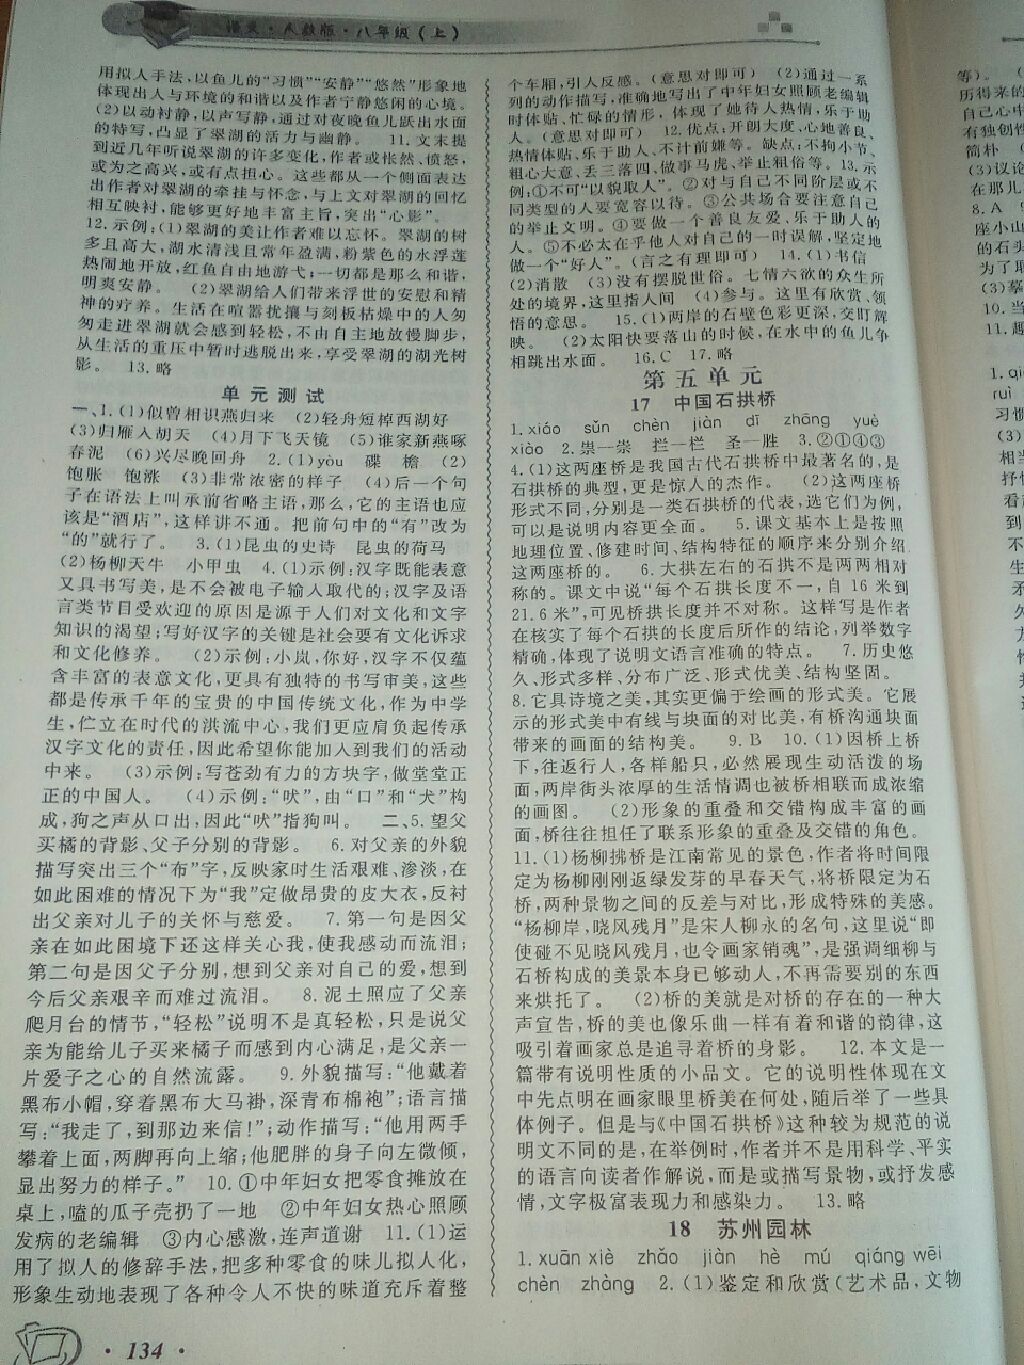 语文·人教版·八年级(上)
用拟人手法,以鱼儿的“习惯”“安静”“悠然”形象地
体现出人与环境的和谐以及作者宁静悠闲的心境。
(2)以动衬静,以声写静,通过对夜晚鱼儿跃出水面
的特写,凸显了翠湖的活力与幽静。 11.文末提
到近几年听说翠湖的许多变化,作者或怅然、愤怒,
或为之高兴,或有点担心。这些都从一个侧面表达
出作者对翠湖的牵挂与怀念,与上文对翠湖的回忆
相互映衬,能够更好地丰富主旨,突出“心影”。
12.示例:(1)翠湖的美让作者难以忘怀。翠湖的树
多且高大,湖水清浅且常年盈满,粉紫色的水浮莲
热闹地开放,红鱼自由地游弋;一切都是那么和谐,
明爽安静。 (2)翠湖给人们带来浮世的安慰和精
神的疗养。生活在喧嚣扰攘与刻板枯燥中的人匆
匆走进翠湖就会感到轻松,不由自主地放慢脚步,
从生活的重压中暂时逃脱出来,享受翠湖的湖光树
影。 13.略
单元测试
一、1.(1)似曾相识燕归来 (2)轻舟短棹西湖好
(3)归雁入胡天 (4)月下飞天镜 (5)谁家新燕啄
春泥 (6)兴尽晚回舟 2.(1)yòu 碟 檐 (2)
饱胀 饱涨 (3)非常浓密的样子 (4)后一个句
子在语法上叫承前省略主语,那么,它的主语也应
该是“酒店”,这样讲不通。把前句中的“有”改为
“的”就行了。 3.(1)昆虫的史诗 昆虫的荷马
(2)杨柳天牛 小甲虫 4.(1)示例:汉字既能表意
又具书写美,是不会被电子输入取代的;汉字及语
言类节目受欢迎的原因是源于人们对文化和文字
知识的渴望;写好汉字的关键是社会要有文化诉求
和文化修养。 (2)示例:小岚,你好,汉字不仅蕴
含丰富的表意文化,更具有独特的书写审美,这些
都是传承千年的宝贵的中国传统文化,作为中学
生,伫立在时代的洪流中心,我们更应肩负起传承
汉字文化的责任,因此希望你能加入到我们的活动
中来。 (3)示例:写苍劲有力的方块字,做堂堂正
正的中国人。 (4)示例:“吠”,由“口”和“犬”构
成,狗之声从口出,因此“吠”指狗叫。 二、5.望父
买橘的背影、父子分别的背影。 6.对父亲的外貌
描写突出三个“布”字,反映家时生活艰难、渗淡,在
如此困难的情况下为“我”定做昂贵的皮大衣,反衬
出父亲对儿子的关怀与慈爱。 7.第一句是因父
亲在如此困境下还这样关心我,使我感动而流泪;
第二句是因父子分别,想到父亲对自己的爱,想到
今后父亲艰辛而难过流泪。 8.泥土照应了父亲
爬月台的情节,“轻松”说明不是真轻松,只是说父
亲为能给儿子买来橘子而感到内心满足,是父亲一
片爱子之心的自然流露。 9.外貌描写:“他戴着
黑布小帽,穿着黑布大马褂,深青布棉袍”;语言描
写:“我走了,到那边来信!”;动作描写:“他用两手
攀着上面,两脚再向上缩;他肥胖的身子向左微倾,
显出努力的样子。” 10.①中年妇女把零食摊放在
桌上,嗑的瓜子壳扔了一地 ②中年妇女热心照顾
发病的老编辑 ③内心感激,连声道谢 11.(1)运
用了拟人的修辞手法,把多种零食的味儿拟人化,
形象生动地表现了各种令人不快的味道充斥着整
个车厢,引人反感。(意思对即可) (2)通过一系
列的动作描写,准确地写出了中年妇女照顾老编辑
时体贴、忙碌的情形,体现了她待人热情,乐于助
人。(意思对即可) 12.优点:开朗大度、心地善良、
热情体贴、乐于助人、不计前嫌等。缺点:不拘小节、
粗心大意、丢三落四、做事马虎、举止粗俗等。13.示
例:①不可“以貌取人”。②对与自己不同阶层或不
同类型的人要宽容以待。③公共场合要注意自己
的举止文明。④要做一个善良友爱、乐于助人的
人。⑤不必太在乎他人对自己的一时误解,坚定地
做一个“好人”。(言之有理即可) 14.(1)书信
(2)消散 (3)没有摆脱世俗。七情六欲的众生所
处的境界,这里指人间 (4)参与。这里有欣赏、领
悟的意思。 15.(1)两岸的石壁色彩更深,交盯辉
映。 (2)太阳快要落山的时候,在水中的鱼儿争
相跳出水面。 16.C 17.略
第五单元
17 中国石拱桥
1.xiáo sǔn chèn jiàn dī zhāng yuè
xiào 2.祟—崇 拦—栏 圣—胜 3.②①④③
4.(1)这两座桥是我国古代石拱桥中最著名的,是
石拱桥的典型,更是惊人的杰作。 (2)这两座桥
形式不同,分别是一类石拱桥的代表,选它们为例,
可以是说明内容更全面。 5.课文基本上是按照
地理位置、修建时间、结构特征的顺序来分别介绍
这两座桥的。 6.大拱左右的石拱不是两两相对
称的。课文中说“每个石拱长度不一,自 16 米到
21.6 米”,可见桥拱长度并不对称。这样写是作者
在核实了每个石拱的长度后所作的结论,列举数字
精确,体现了说明文语言准确的特点。 7.历史悠
久、形式多样、分布广泛、形式优美、结构坚固。
8.它具诗境之美,其实更偏于绘画的形式美。它展
示的形式美中有线与块面的对比美,有桥沟通块面
带来的画面的结构美。 9.B 10.(1)因桥上桥
下,往返行人,各样船只,必然展现生动活泼的场
面,两岸街头浓厚的生活情调也被桥相联而成浓缩
的画图。 (2)形象的重叠和交错构成丰富的画
面,桥往往担任了联系形象的重叠及交错的角色。
11.(1)杨柳拂桥是江南常见的景色,作者将时间限
定为杨柳刚刚返绿发芽的早春天气,将桥限定为石
桥,两种景物之间的反差与对比,形成特殊的美感。
“杨柳岸,晓风残月”是宋人柳永的名句,这里说“即
使碰不见晓风残月,也令画家销魂”,是强调细柳与
石桥构成的美景本身已够动人,不再需要别的东西
来烘托了。 (2)桥的美就是对桥的存在的一种大
声宣告,桥的美也像乐曲一样有着和谐的韵律,这
吸引着画家总是追寻着桥的身影。 12.本文是一
篇带有说明性质的小品文。它的说明性体现在文
中先点明在画家眼里桥美在何处,随后举了一些具
体例子。但是与《中国石拱桥》这种较为规范的说
明文不同的是,在举例时,作者并不是用科学、平实
的语言向读者作解说,而是或描写景物,或抒发感
情,文字极富表现力和感染力。 13.略
18 苏州园林
1.xuān xiè zhǎo jiàn hè mú qiáng wēi
chèn zhàng 2.(1)鉴定和欣赏(艺术品,文物
· 134 ·
等)。
历得来的
自己心中
有独创性
简朴
(3)议论
在那儿
8.A
座小山
的石头
为了取
(3)摹
10.当
11.趣